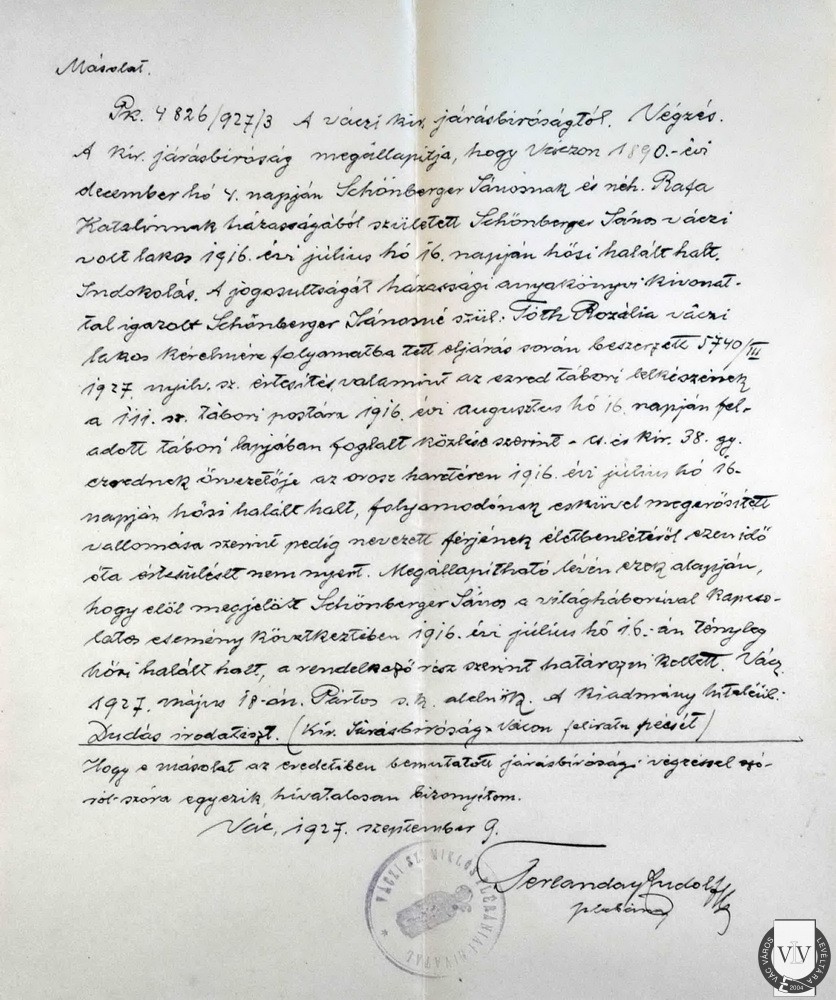 Másolat.
Pk. 4826/927/3 A váczi kir. járásbíróságtól. Végzés.
A kir. járásbíróság megállapítja, hogy Váczon 1890.-évi
december hó 4. napján Schönberger Jánosnak és néh. Rafa
Katalinnak házasságából született Schönberger János váczi
volt lakos 1916. évi július hó 16. napján hősi halált halt.
Indokolás. A jogosultságát hazassági anyakönyvi kivonat-
tal igazolt Schönberger Jánosné szül: Tóth Rozália váczi
lakos kérelmére folyamatba tett eljárás során beszerzett 5740/III
1927. nyilv. sz. értesítés, valamint az ezred tábori lelkészének
a 111. sz. tábori postára 1916. évi augusztus hó 16. napján fel-
adott tábori lapjában foglalt közlése szerint - cs. és kir. 38. gy.
ezrednek őrvezetője az orosz harctéren 1916. évi július hó 16-
napján hősi halált halt, folyamodónak esküvel megerősített
vallomása szerint pedig nevezett férjének életbenlétéről ezen idő
óta értesülést nem nyert. Megállapítható lévén ezek alapján,
hogy elől megjelölt Schönberger János a világháborúval kapcso-
latos esemény következtében 1916. évi július hó 16.-án tényleg
hősi halált halt, a rendelkező rész szerint határozni kellett. Vác
1927. május 18-án. Pártos s.k. alelnök. A kiadmány hiteléül:
Dudás irodatiszt. (Kir. Járásbíróság Vácon feliratu pecsét)
Hogy e másolat az eredetiben bemutatott járásbírósági végzéssel szó-
ról-szóra egyezik, hivatalosan bizonyítom.
Vác, 1927. szeptember 9.
Terlanday Rudolf
plébános
VÁCZI SZ. MIKLÓS PLÉBÁNIAI HIVATAL
VÁC VÁROS LEVÉLTÁRA
VLV
2004